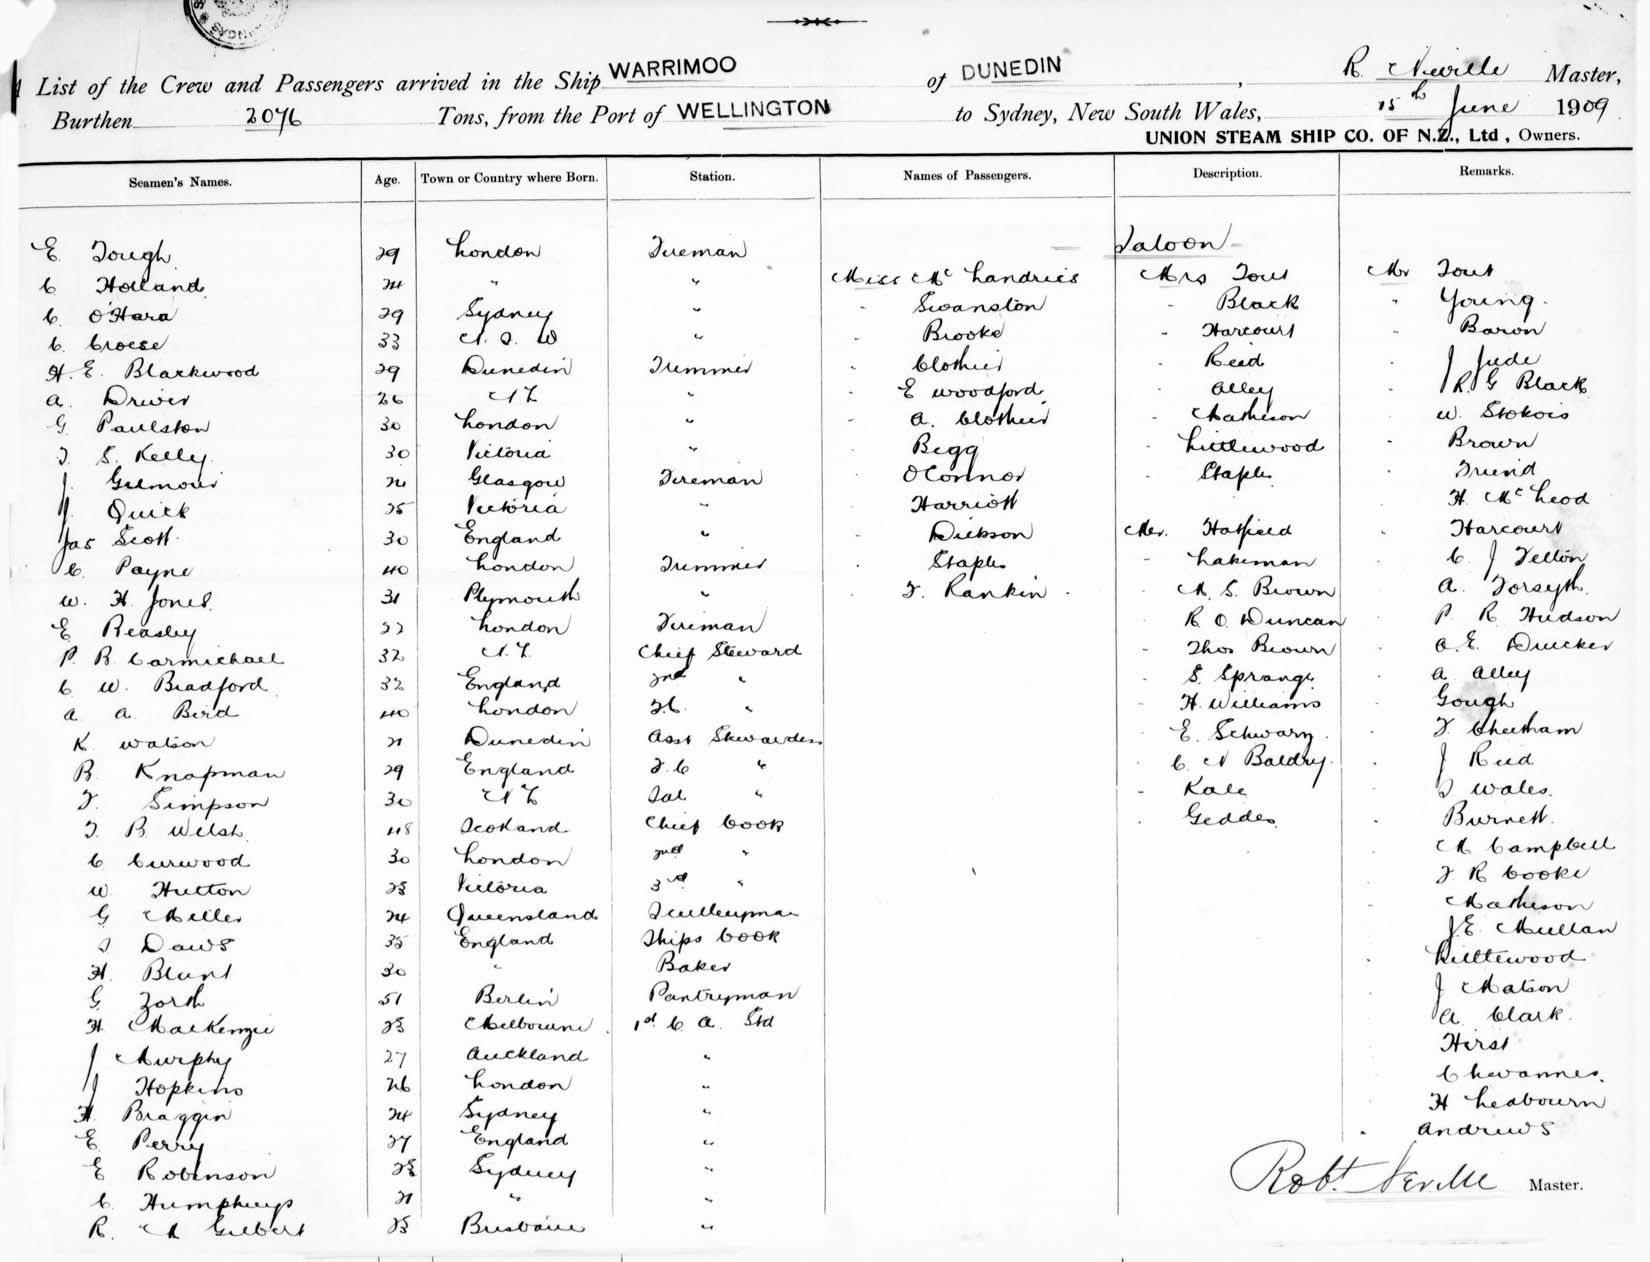 SYDNEY
List of the Crew and Passengers arrived in the Ship WARRIMOO of DUNEDIN, R. Neville Master,
Burthen 2076 Tons, from the Port of WELLINGTON to Sydney, New South Wales, 15th June 1909.
UNION STEAM SHIP CO. OF N.Z., Ltd, Owners.
Seamen's Names. Age. Town or Country where Born. Station. Names of Passengers. Description. Remarks.
Saloon
E Tough 29 London Fireman
C Holland 24 " " Miss McLandries Mrs Tout Mr Tout
C. O'Hara 29 Sydney " - Swanston - Black " Young
C. Croese 33 N. S. W " - Brooke - Harcourt - Baron
H. E. Blackwood 29 Dunedin Trimmer - Clothier - Reid - J Jude
A. Driver 26 N Z " - E Woodford - Alley - R. G Black
G. Paulston 30 London " - A. Clothier - Matheson - W. Stokois
T. S. Kelly 30 Victoria " - Begg - Littlewood - Brown
J. Gilmour 21 Glasgow Fireman - O'Connor - Staples - Friend
J. Quick 25 Victoria " - Harriott H. McLeod
Jas Scott 30 England " - Dickson Mr. Hatfield - Harcourt
C. Payne 40 London Trimmer - Staples - Lakeman - C. J Felton
W. H. Jones 31 Plymouth " - F. Rankin - M. S. Brown - A. Forsyth
E Beasley 22 London Fireman - R. O. Duncan - P. R. Hudson
P. B. Carmichael 32 N. Z. Chief Steward - Thos Brown - A. E. Duicker
C W. Bradford 32 England 2nd " - S. Sprangs - A Alley
A A. Bird 40 London F.C. " - H. Williams - Gough
K. Watson 21 Dunedin Asst Stewardess - E. Schwarz - F. Cheetham
B. Knapman 29 England F.C " - C. N Baldry - J Reid
F. Simpson 30 N Z Sal " - Kale - S Wales.
T. B Welsh 48 Scotland Chief Cook - Geddes - Burnett.
C Curwood 30 London 2nd " - M Campbell
W Hutton 23 Victoria 3rd " - F R Cooke
G Miller 24 Queensland Sculleryman - Matheson
S Daws 35 England Ships Cook J. E. Mullan
H. Blunt 30 " Baker - Littlewood
G. Zorth 51 Berlin Pantryman J Matson
H MacKenzie 23 Melbourne 1st C. A. Std A. Clark.
J Murphy 27 Auckland " Hirst
J Hopkins 26 London " Chevannes.
H. Braggin 24 Sydney " H Leabourn
E. Perry 27 England " - Andrews
E Robinson 23 Sydney "
C. Humphreys 21 " " Robt. Neville Master.
R. M Gilbert 23 Brisbane "